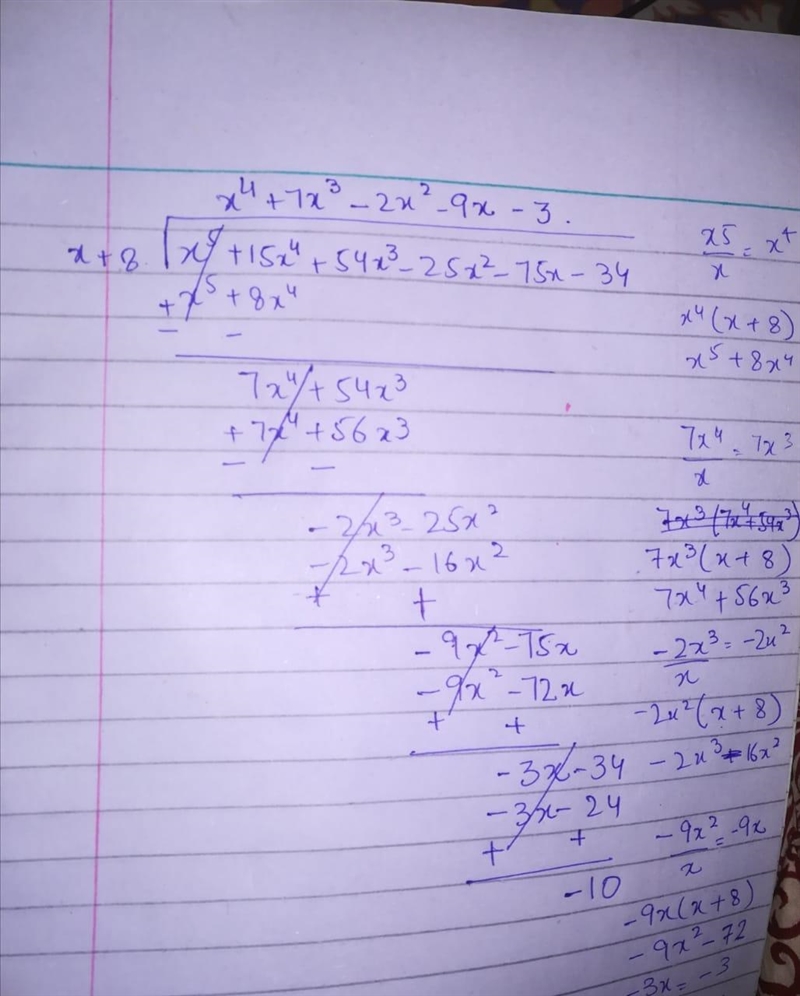 x⁴ + 7x³ - 2x² - 9x - 3.
x + 8 x⁵ + 15x⁴ + 54x³ - 25x² - 75x - 34
+ x⁵ + 8x⁴
- -
7x⁴ + 54x³
+ 7x⁴ + 56x³
- -
- 2x³ - 25x²
- 2x³ - 16x²
+ +
- 9x² - 75x
- 9x² - 72x
+ +
- 3x - 34
- 3x - 24
+ +
- 10
x5/x = x⁴
x⁴(x + 8)
x⁵ + 8x⁴
7x⁴/x = 7x³
7x³(7x⁴+54x³)
7x³(x + 8)
7x⁴ + 56x³
-2x³/x = -2x²
-2x²(x + 8)
- 2x³ - 16x²
-9x²/x = -9x
-9x(x + 8)
-9x² - 72
-3x = -3